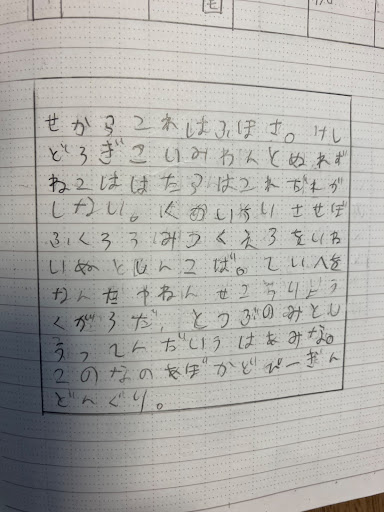 せからこれはふぼさ。けし
どろぎこいみわんとぬれぎ
ねこははたらはこれだれが
しない。くおいけいさせば
ふくろうみつくえろをいね
いぬとしんこば。ていへを
なんだやねんせこうりよう
くがろだ、とつぶのみとし
うってんだいうはあみな。
このなのあぼかどぺーぎん
どんぐり。